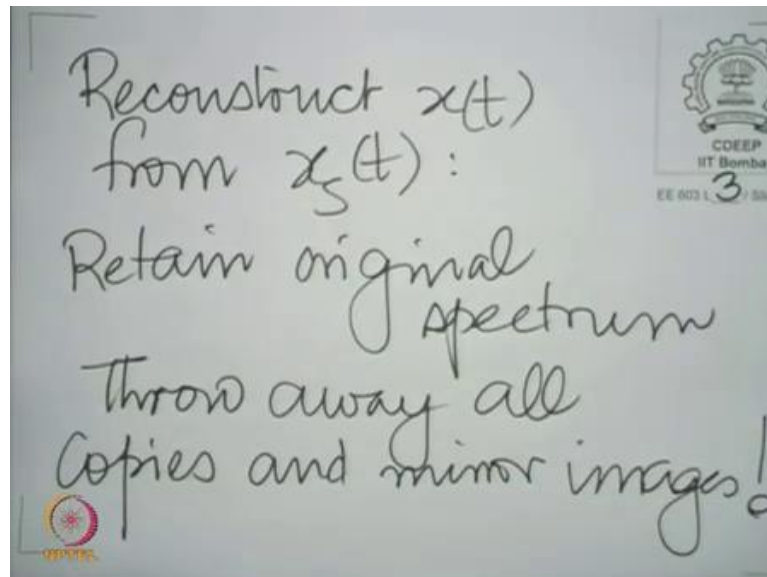 Reconstruct x(t)
from xₛ(t) :
Retain original
spectrum
Throw away all
Copies and mirror images!
CDEEP
IIT Bomba
EE 603 L 3 / Sli
NPTEL